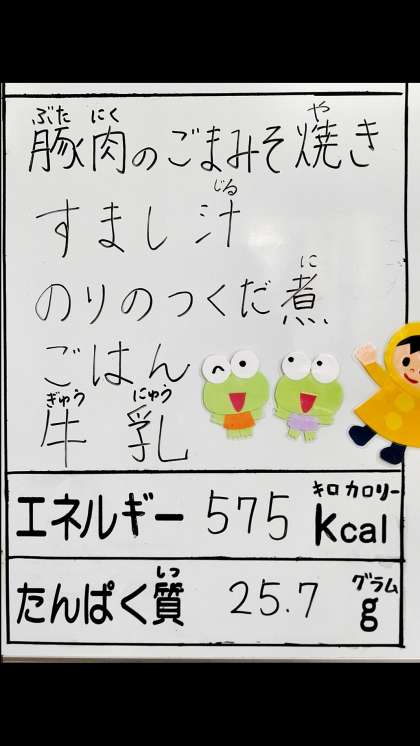 ぶた にく や
豚肉のごまみそ焼き
じる
すまし汁
に
のりのつくだ煮
ごはん
ぎゅう にゅう
牛 乳
キロ カロリー
エネルギー 575 kcal
しつ グラム
たんぱく質 25.7 g